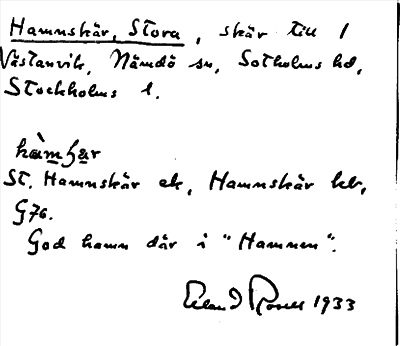 Hamnskär, Stora, skär till 1
Västanvik, Nämdö sn, Sotholms hd,
Stockholms l.
St. Hamnskär ek, Hamnskär kb,
G76.
God hamn där i "Hamnen".
1933